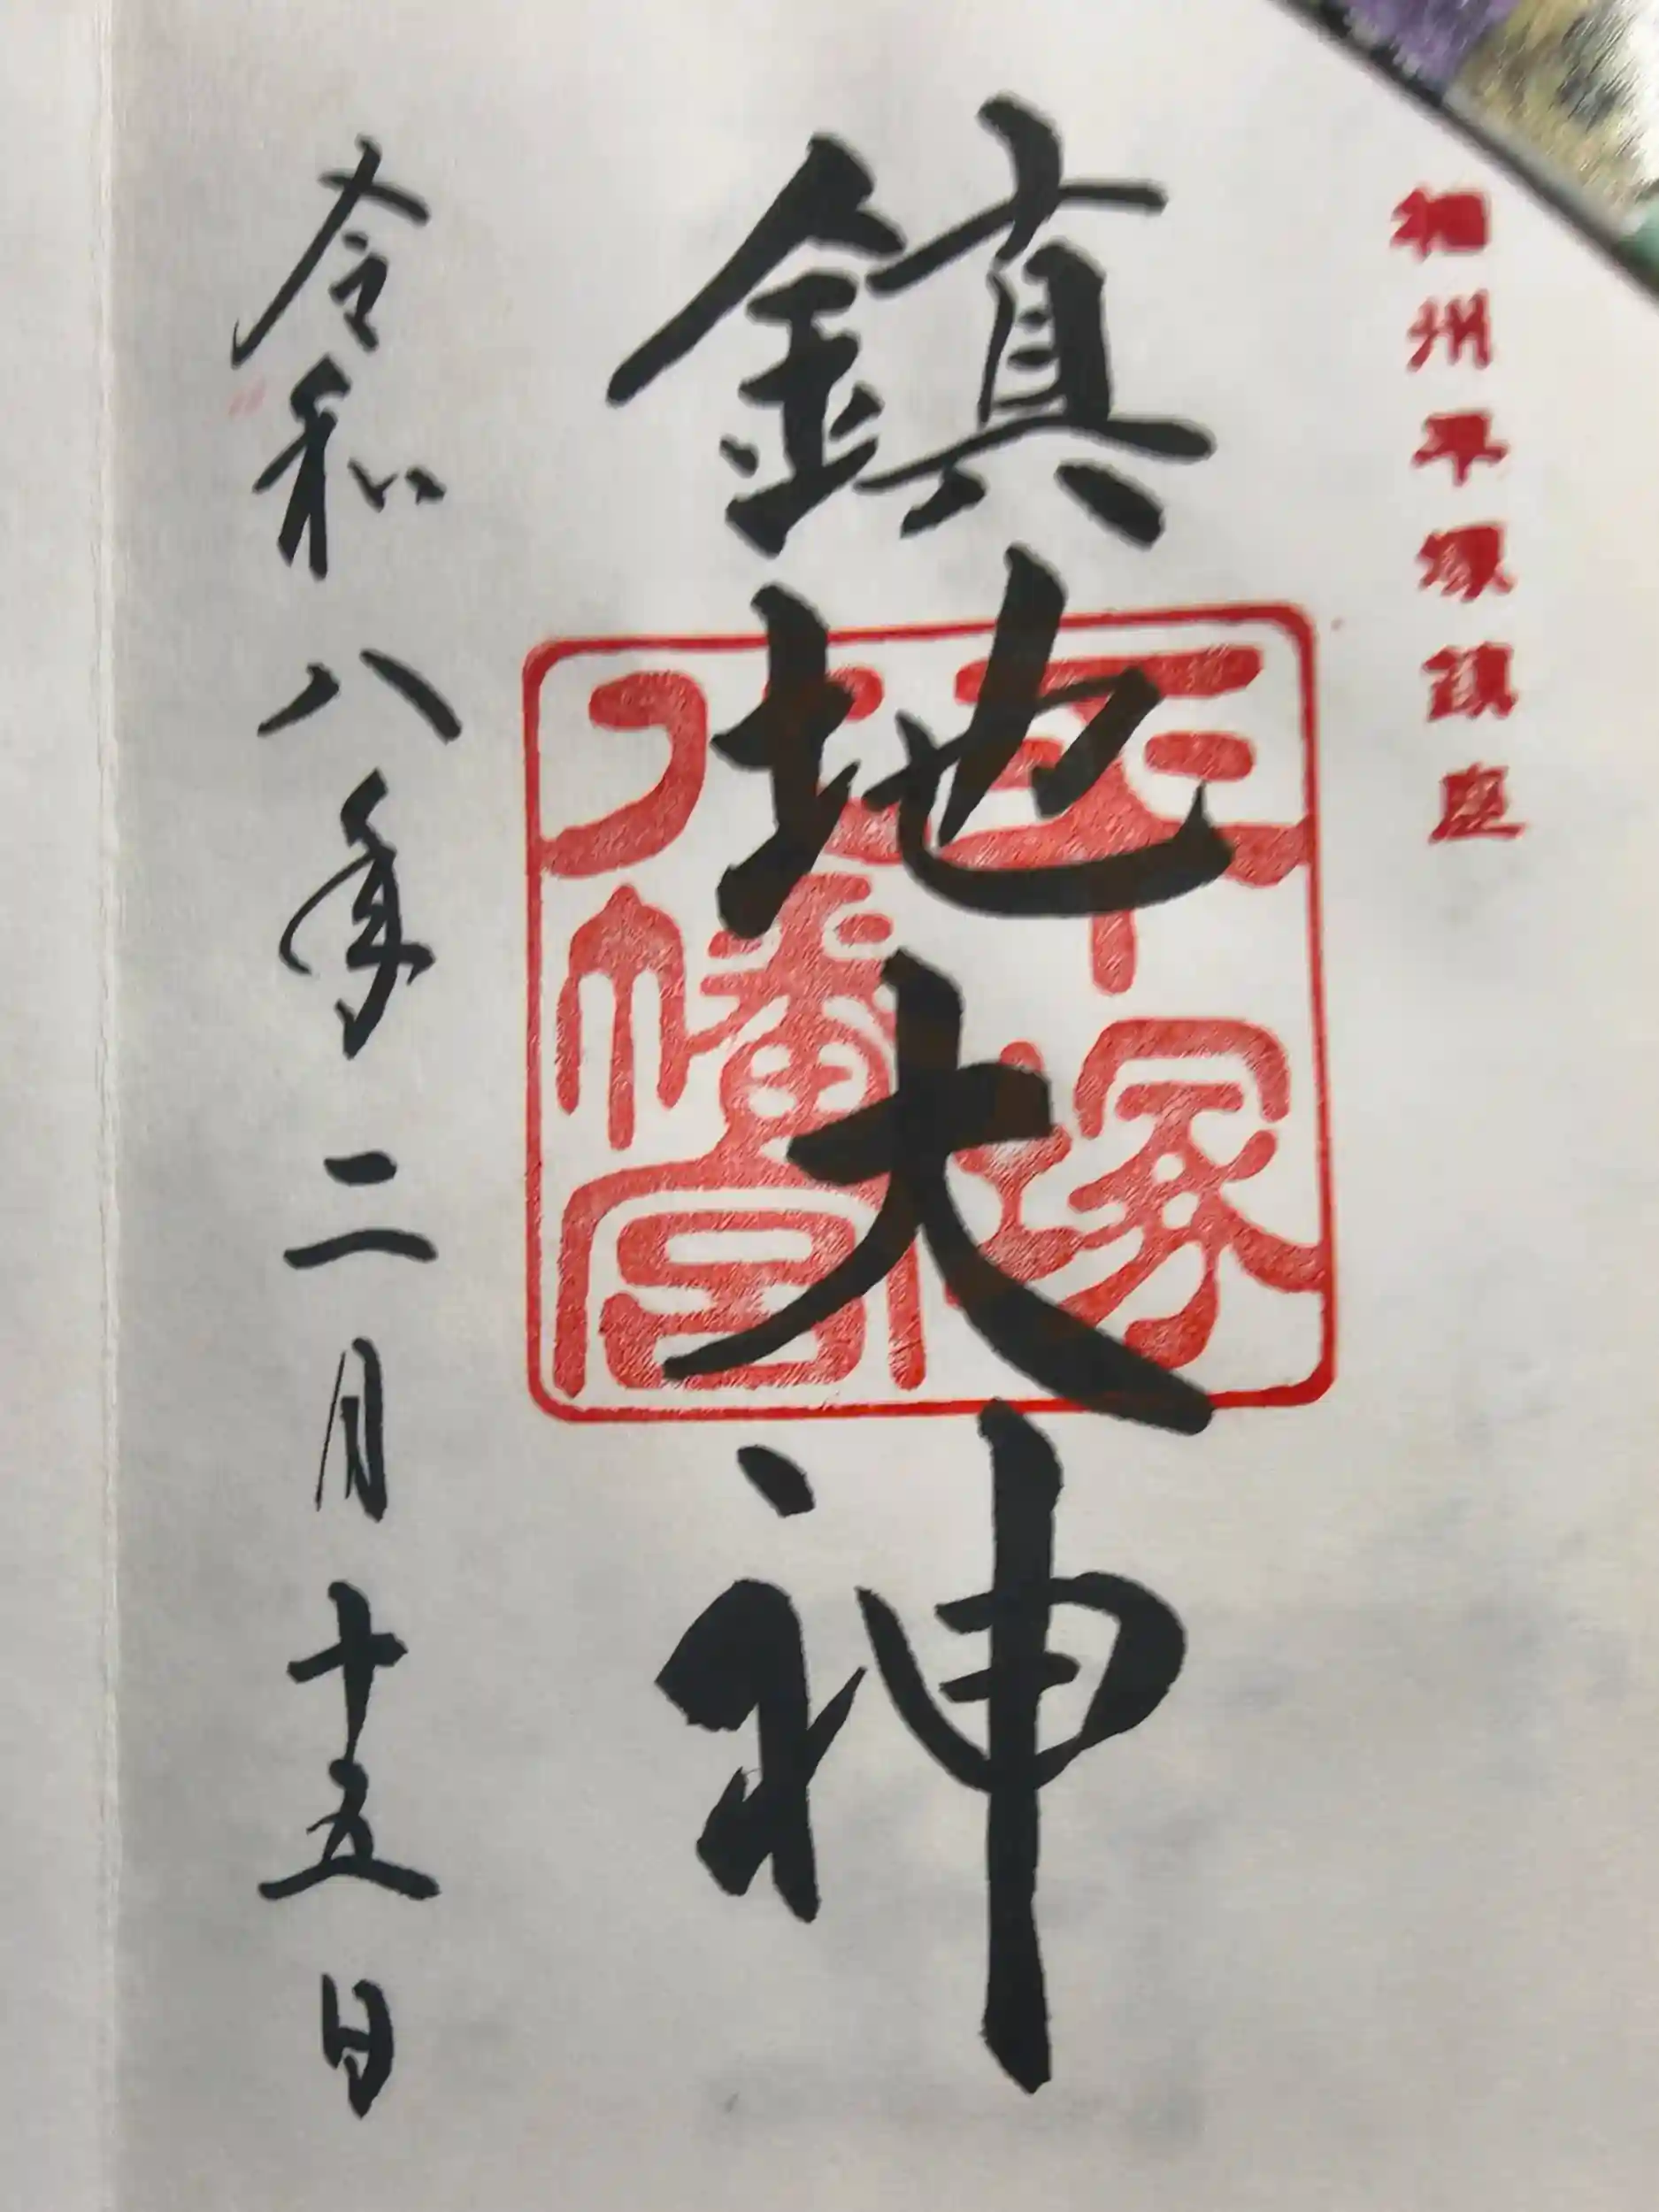 相州平塚鎮座
鎮地大神
平塚
八幡宮
令和八年二月十五日